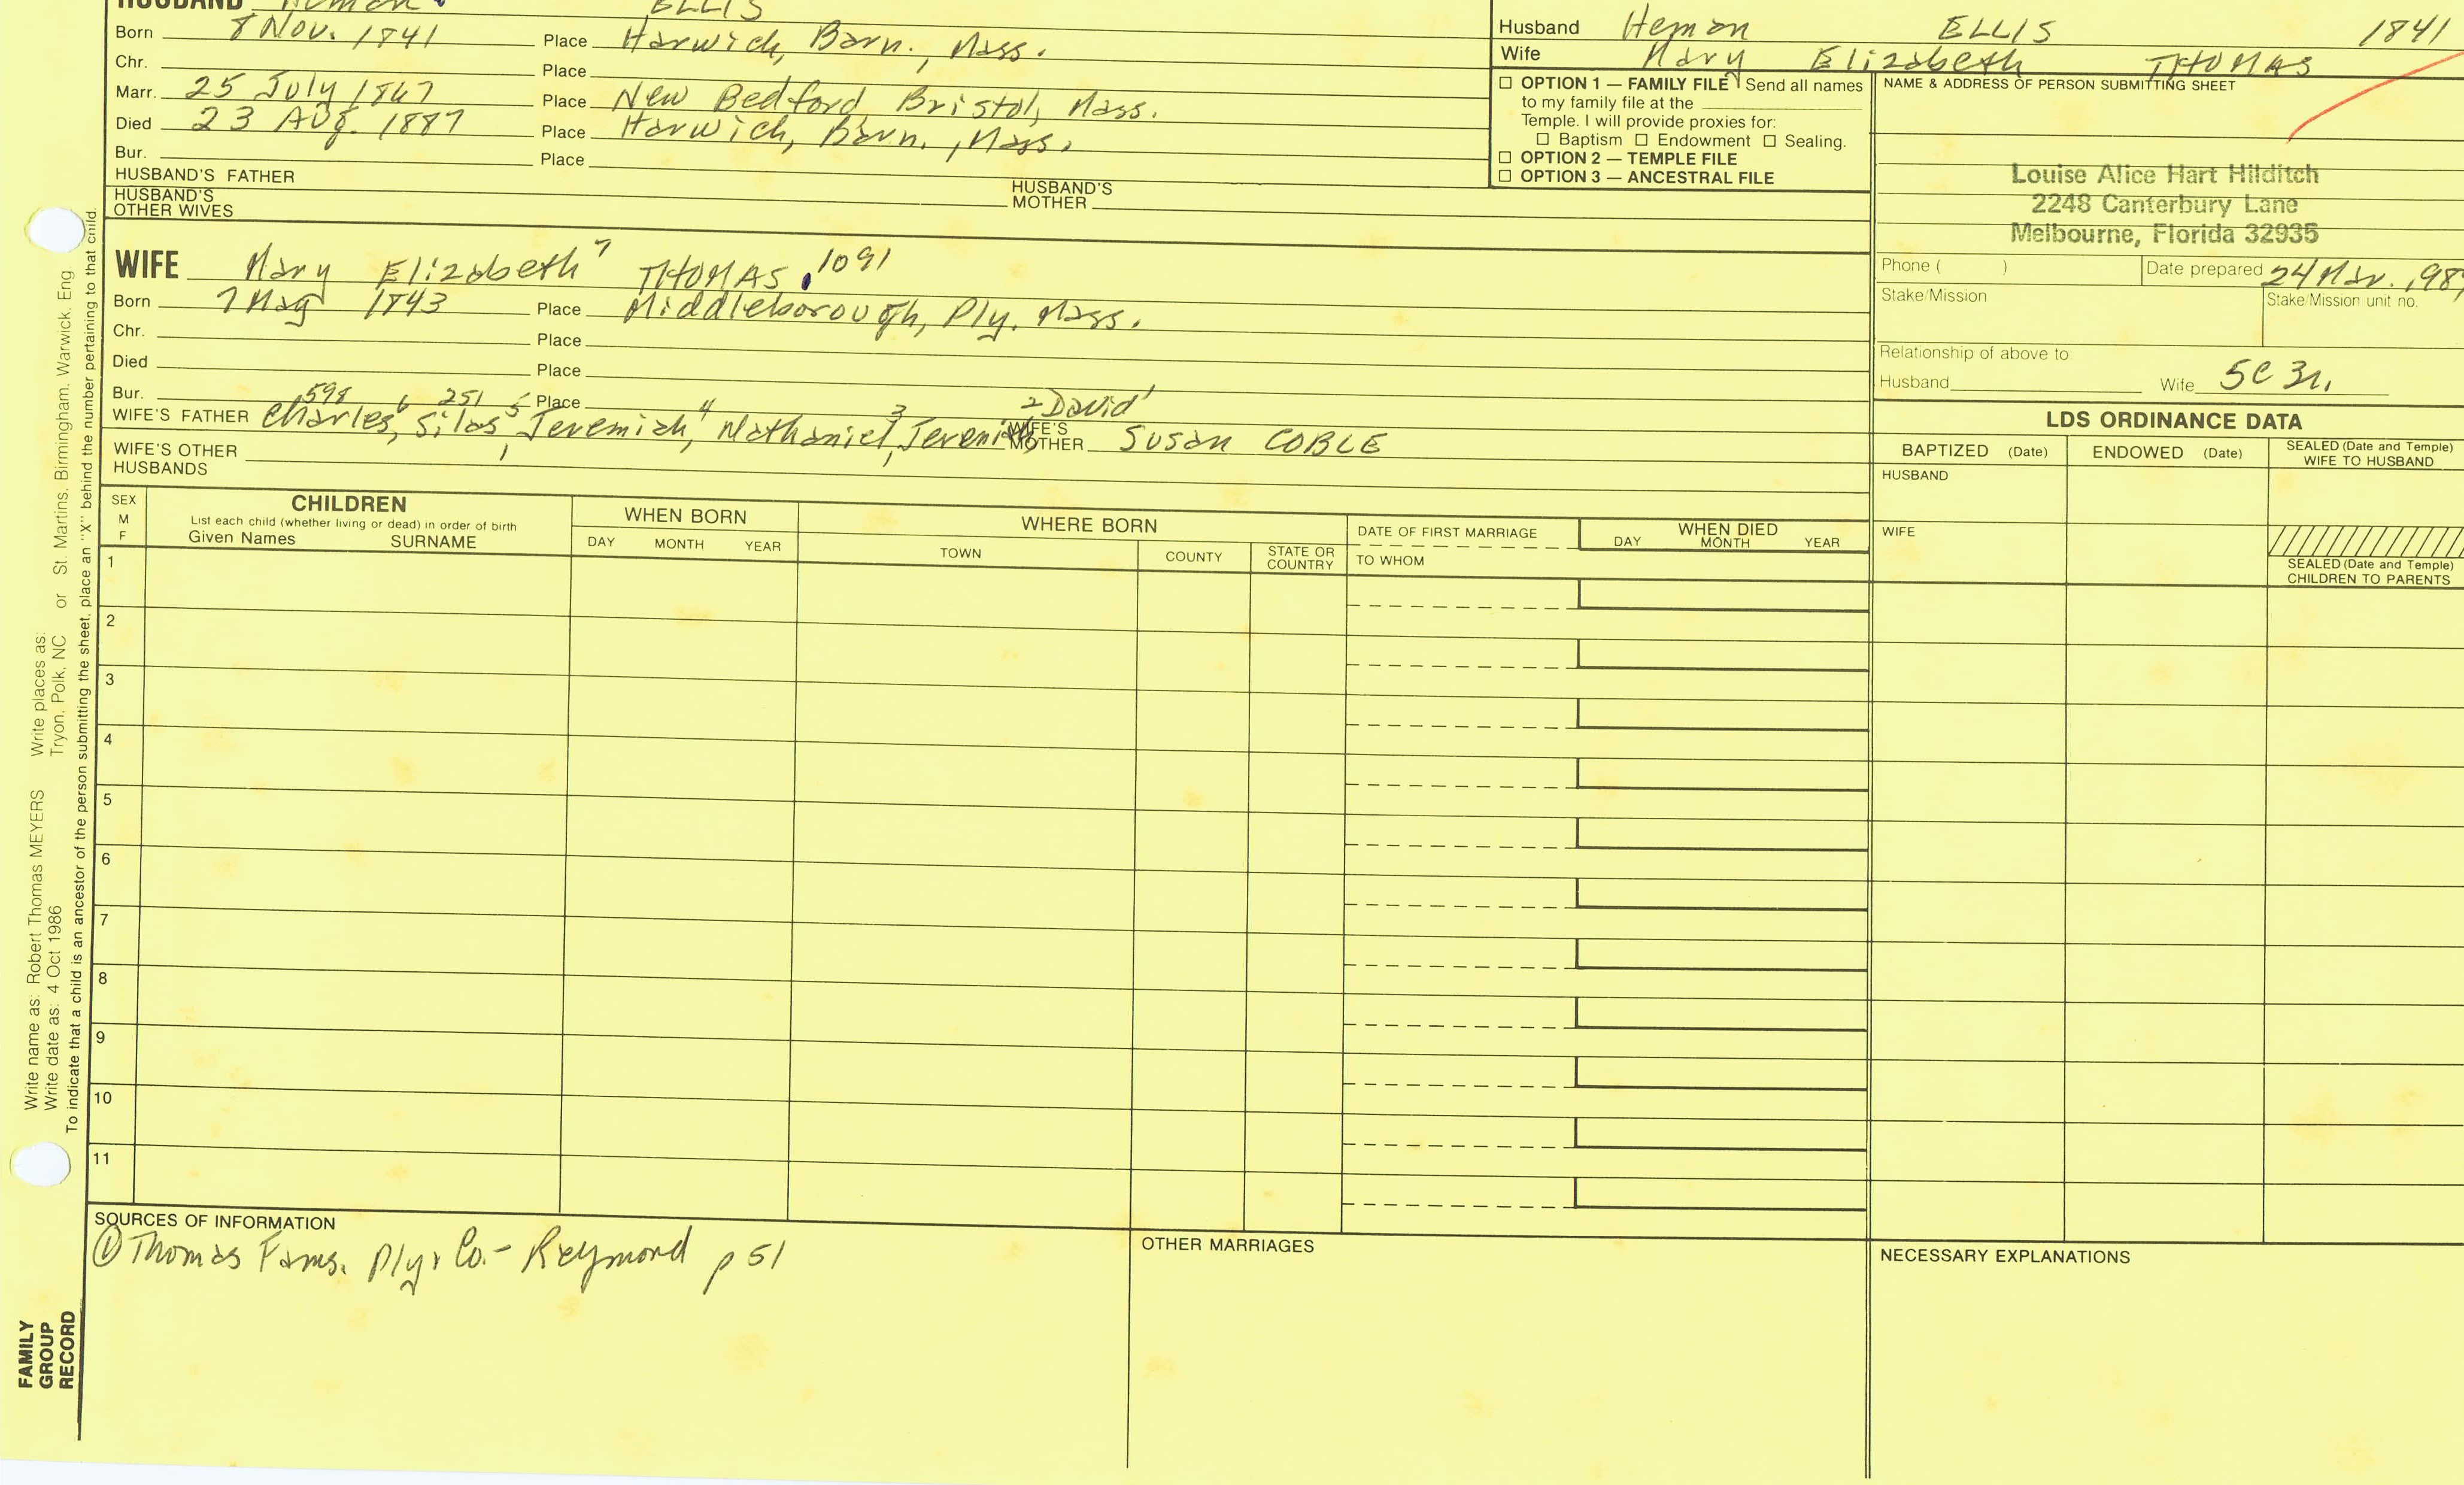 HUSBAND Heman ELLIS
Born 8 Nov. 1841 Place Harwich, Barn., Mass.
Chr. Place
Marr. 25 July 1867 Place New Bedford, Bristol, Mass.
Died 23 Aug. 1887 Place Harwich, Barn., Mass.
Bur. Place
HUSBAND'S FATHER HUSBAND'S MOTHER
HUSBAND'S OTHER WIVES
Husband Heman ELLIS 1841
Wife Mary Elizabeth THOMAS
☐ OPTION 1 — FAMILY FILE Send all names
to my family file at the
Temple. I will provide proxies for:
☐ Baptism ☐ Endowment ☐ Sealing.
☐ OPTION 2 — TEMPLE FILE
☐ OPTION 3 — ANCESTRAL FILE
NAME & ADDRESS OF PERSON SUBMITTING SHEET
Louise Alice Hart Hilditch
2248 Canterbury Lane
Melbourne, Florida 32935
Phone ( ) Date prepared 24 Mar. ,98
Stake/Mission Stake/Mission unit no.
Relationship of above to
Husband Wife 5C 3r.
WIFE Mary Elizabeth 7 THOMAS, 1091
Born 7 May 1843 Place Middleborough, Ply. Mass.
Chr. Place
Died Place
Bur. Place
598 6 251 5 4 3 2 David 1
WIFE'S FATHER Charles, Silas, Jeremiah, Nathaniel, Jeremiah, WIFE'S MOTHER Susan COBLE
WIFE'S OTHER HUSBANDS
LDS ORDINANCE DATA
BAPTIZED (Date) ENDOWED (Date) SEALED (Date and Temple) WIFE TO HUSBAND
HUSBAND
WIFE
SEALED (Date and Temple)
CHILDREN TO PARENTS
SEX M F
CHILDREN
List each child (whether living or dead) in order of birth
Given Names SURNAME
WHEN BORN
DAY MONTH YEAR
WHERE BORN
TOWN COUNTY STATE OR COUNTRY
DATE OF FIRST MARRIAGE
TO WHOM
WHEN DIED
DAY MONTH YEAR
1
2
3
4
5
6
7
8
9
10
11
SOURCES OF INFORMATION
① Thomas Fams. Ply. Co. - Reymond p 51
OTHER MARRIAGES
NECESSARY EXPLANATIONS
Write name as: Robert Thomas MEYERS Write places as: St. Martins, Birmingham, Warwick, Eng
Write date as: 4 Oct 1986 Tryon, Polk, NC or
To indicate that a child is an ancestor of the person submitting the sheet, place an "X" behind the number pertaining to that child.
FAMILY
GROUP
RECORD